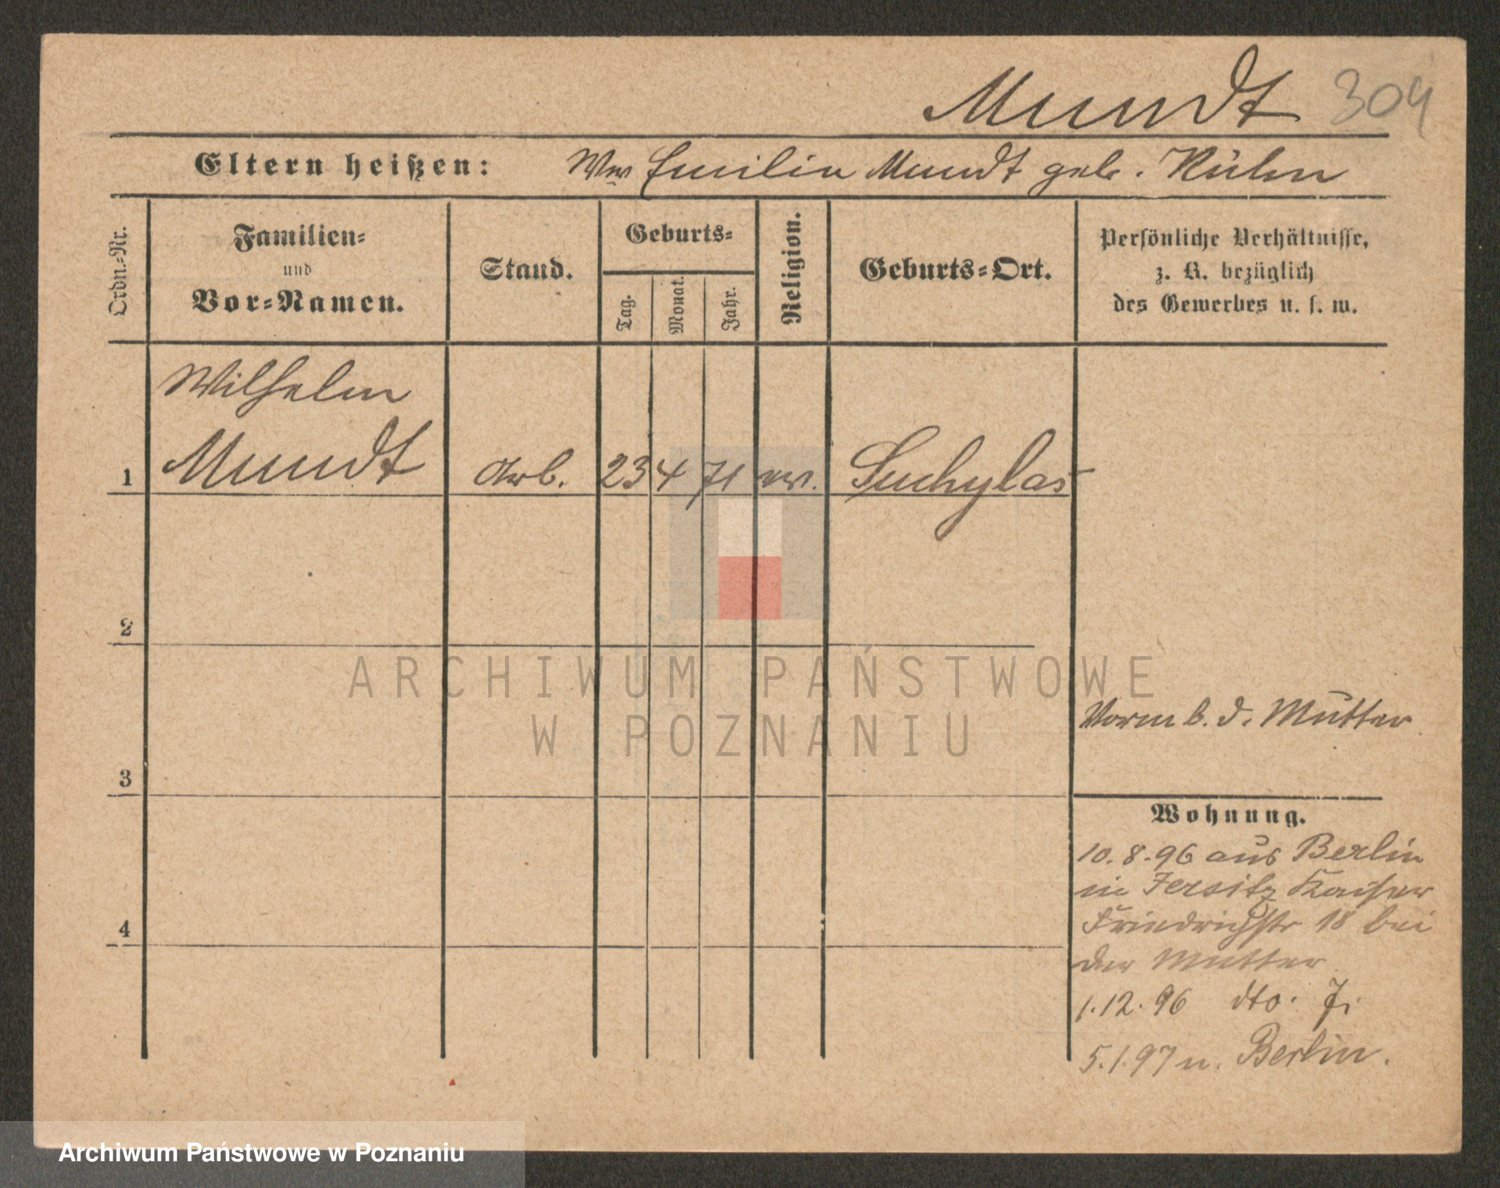 Mundt 304
Eltern heißen: Ww Emilie Mundt geb. Kühn
Ordn.-Nr.
Familien-
und
Vor-Namen.
Stand.
Geburts-
Tag.
Monat.
Jahr.
Religion.
Geburts-Ort.
Persönliche Verhältnisse,
z. B. bezüglich
des Gewerbes u. s. w.
Wilhelm
1 Mundt Arb. 23 4 71 ev. Suchylas
2
3
4
Vorm b. d. Mutter
Wohnung.
10.8.96 aus Berlin
in Jersitz Kaiser
Friedrichstr 18 bei
der Mutter
1.12.96 dto. 7.
5.1.97 n. Berlin.
ARCHIWUM PAŃSTWOWE
W POZNANIU
Archiwum Państwowe w Poznaniu